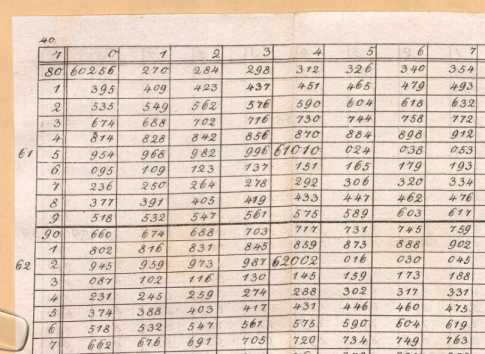 40.
7 0 1 2 3 4 5 6 7
80 60256 270 284 298 312 326 340 354
1 395 409 423 437 451 465 479 493
2 535 549 562 576 590 604 618 632
3 674 688 702 716 730 744 758 772
4 814 828 842 856 870 884 898 912
61 5 954 968 982 996 61010 024 038 053
6 095 109 123 137 151 165 179 193
7 236 250 264 278 292 306 320 334
8 377 391 405 419 433 447 462 476
9 518 532 547 561 575 589 603 617
90 660 674 688 703 717 731 745 759
1 802 816 831 845 859 873 888 902
62 2 945 959 973 987 62002 016 030 045
3 087 102 116 130 145 159 173 188
4 231 245 259 274 288 302 317 331
5 374 388 403 417 431 446 460 475
6 518 532 547 561 575 590 604 619
7 662 676 691 705 720 734 749 763